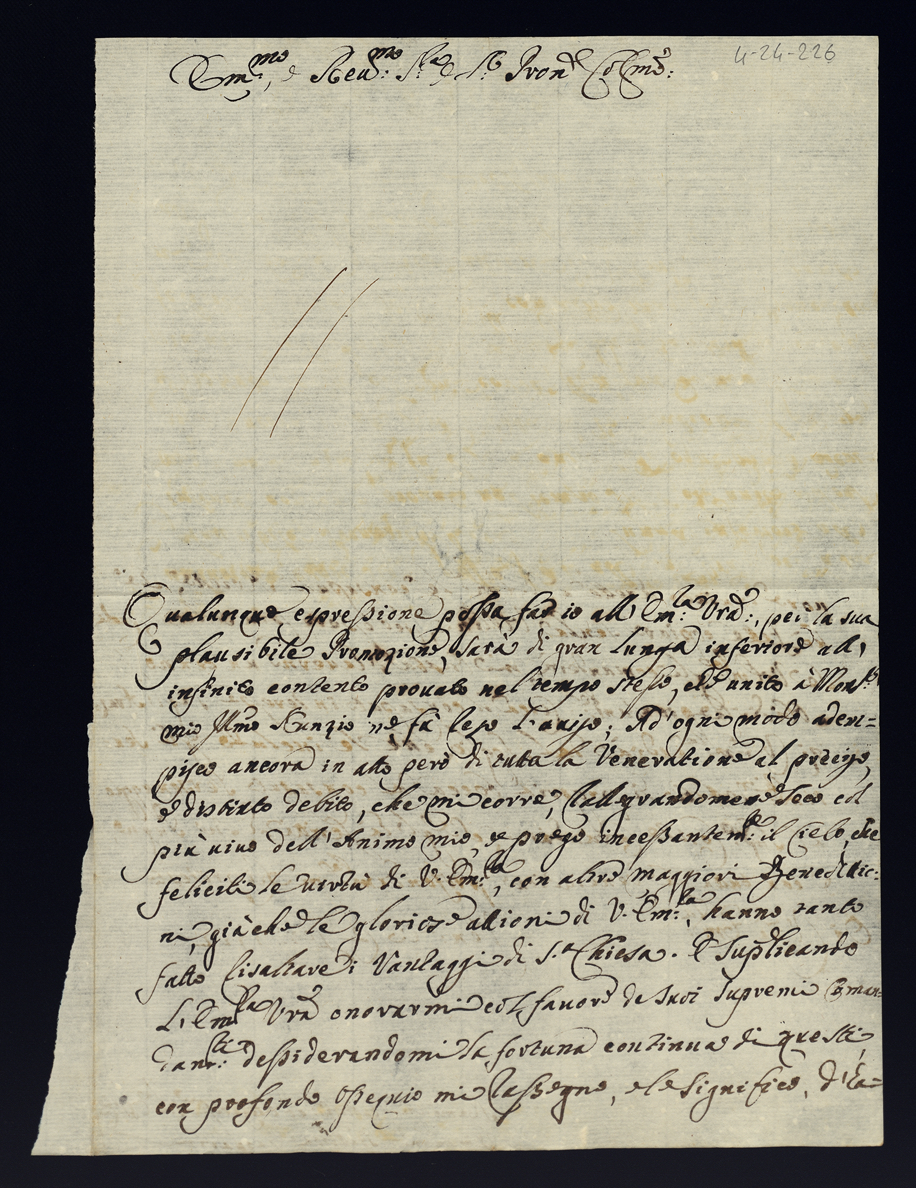 4-24-226
Em:mo, e Reu:mo S:re e P:rone Col:mo:
Qualunque espressione possa far io all' Em:za Vra:, per la sua
plausibile Promozione, sarà di gran lunga inferiore all'
infinito contento prouato nel tempo stesso, che unito à Mons:r
mio Illmo Nunzio ne fà leso l'auiso; Ad' ogni modo adem=
pisco ancora in atto però di tutta la Veneratione al preciso,
e distinto debito, che mi corre, rallegrandomene seco col
più uiuo dell' Animo mio, e prego incessantem:te il Cielo, che
feliciti le uirtù di V. Em:za, con altre maggiori Beneditio=
ni, già che le gloriose attioni di V. Em:za, hanno tanto
fatto risaltare i Vantaggi di S.ta Chiesa. E Supplicando
L'Em:za Vra onorarmi col fauore de suoi supremi Coman=
dam:ti desiderandomi la fortuna continua di questi,
con profondo ossequio mi rassegno, e le significo, d'es=